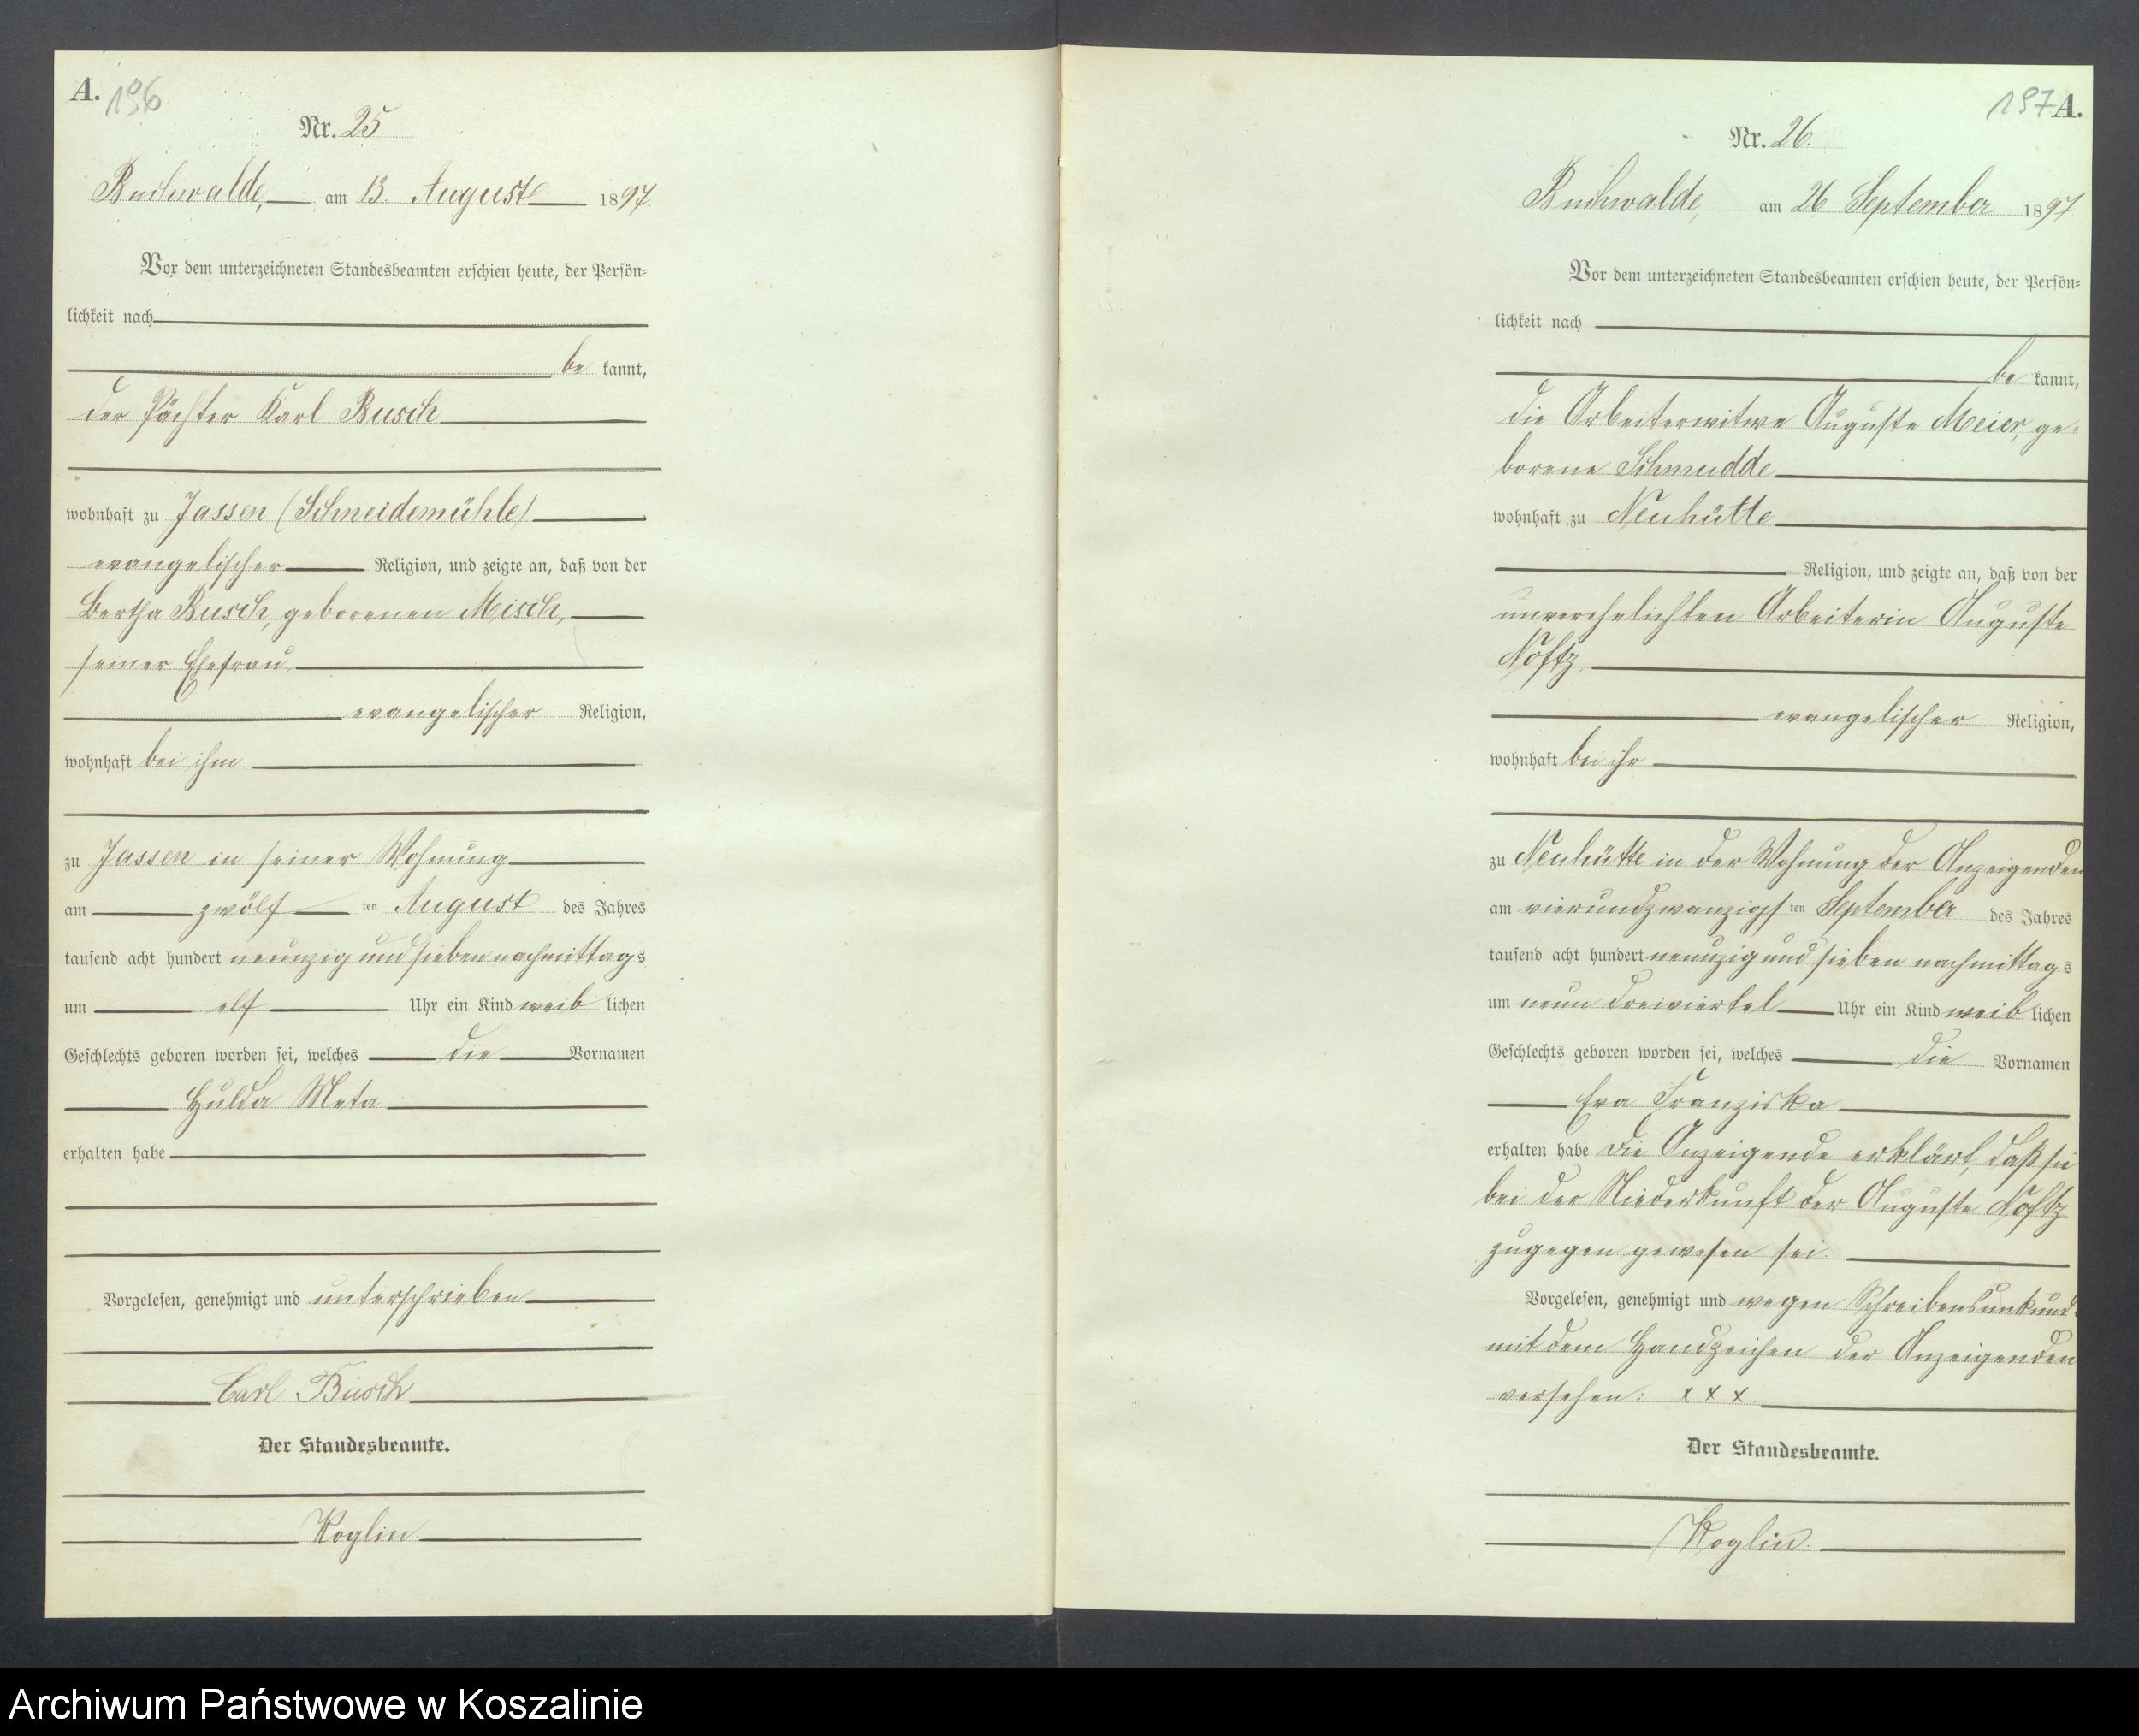 A. 196
Nr. 25.
Buchwalde, am 13. August 1897.
Vor dem unterzeichneten Standesbeamten erschien heute, der Persön=
lichkeit nach
be kannt,
der Pächter Karl Busch
wohnhaft zu Jassen (Schneidemühle)
evangelischer Religion, und zeigte an, daß von der
Bertha Busch, geborenen Misch,
seiner Ehefrau,
evangelischer Religion,
wohnhaft bei ihm
zu Jassen in seiner Wohnung
am zwölf ten August des Jahres
tausend acht hundert neunzig und sieben nachmittags
um elf Uhr ein Kind weib lichen
Geschlechts geboren worden sei, welches die Vornamen
Hulda Meta
erhalten habe
Vorgelesen, genehmigt und unterschrieben
Carl Busch
Der Standesbeamte.
Koglin
197 A.
Nr. 26.
Buchwalde, am 26 September 1897.
Vor dem unterzeichneten Standesbeamten erschien heute, der Persön=
lichkeit nach
be kannt,
die Arbeiterwitwe Auguste Meier, ge-
borene Schmudde
wohnhaft zu Neuhütte
Religion, und zeigte an, daß von der
unverehelichten Arbeiterin Auguste
Noftz,
evangelischer Religion,
wohnhaft bei ihr
zu Neuhütte in der Wohnung der Anzeigenden
am vierundzwanzigs ten September des Jahres
tausend acht hundert neunzig und sieben nachmittags
um neun dreiviertel Uhr ein Kind weib lichen
Geschlechts geboren worden sei, welches die Vornamen
Eva Franziska
erhalten habe die Anzeigende erklärt, daß sie
bei der Niederkunft der Auguste Noftz
zugegen gewesen sei.
Vorgelesen, genehmigt und wegen Schreibensunkund.
mit dem Handzeichen der Anzeigenden
versehen: x x x.
Der Standesbeamte.
Koglin.
Archiwum Państwowe w Koszalinie